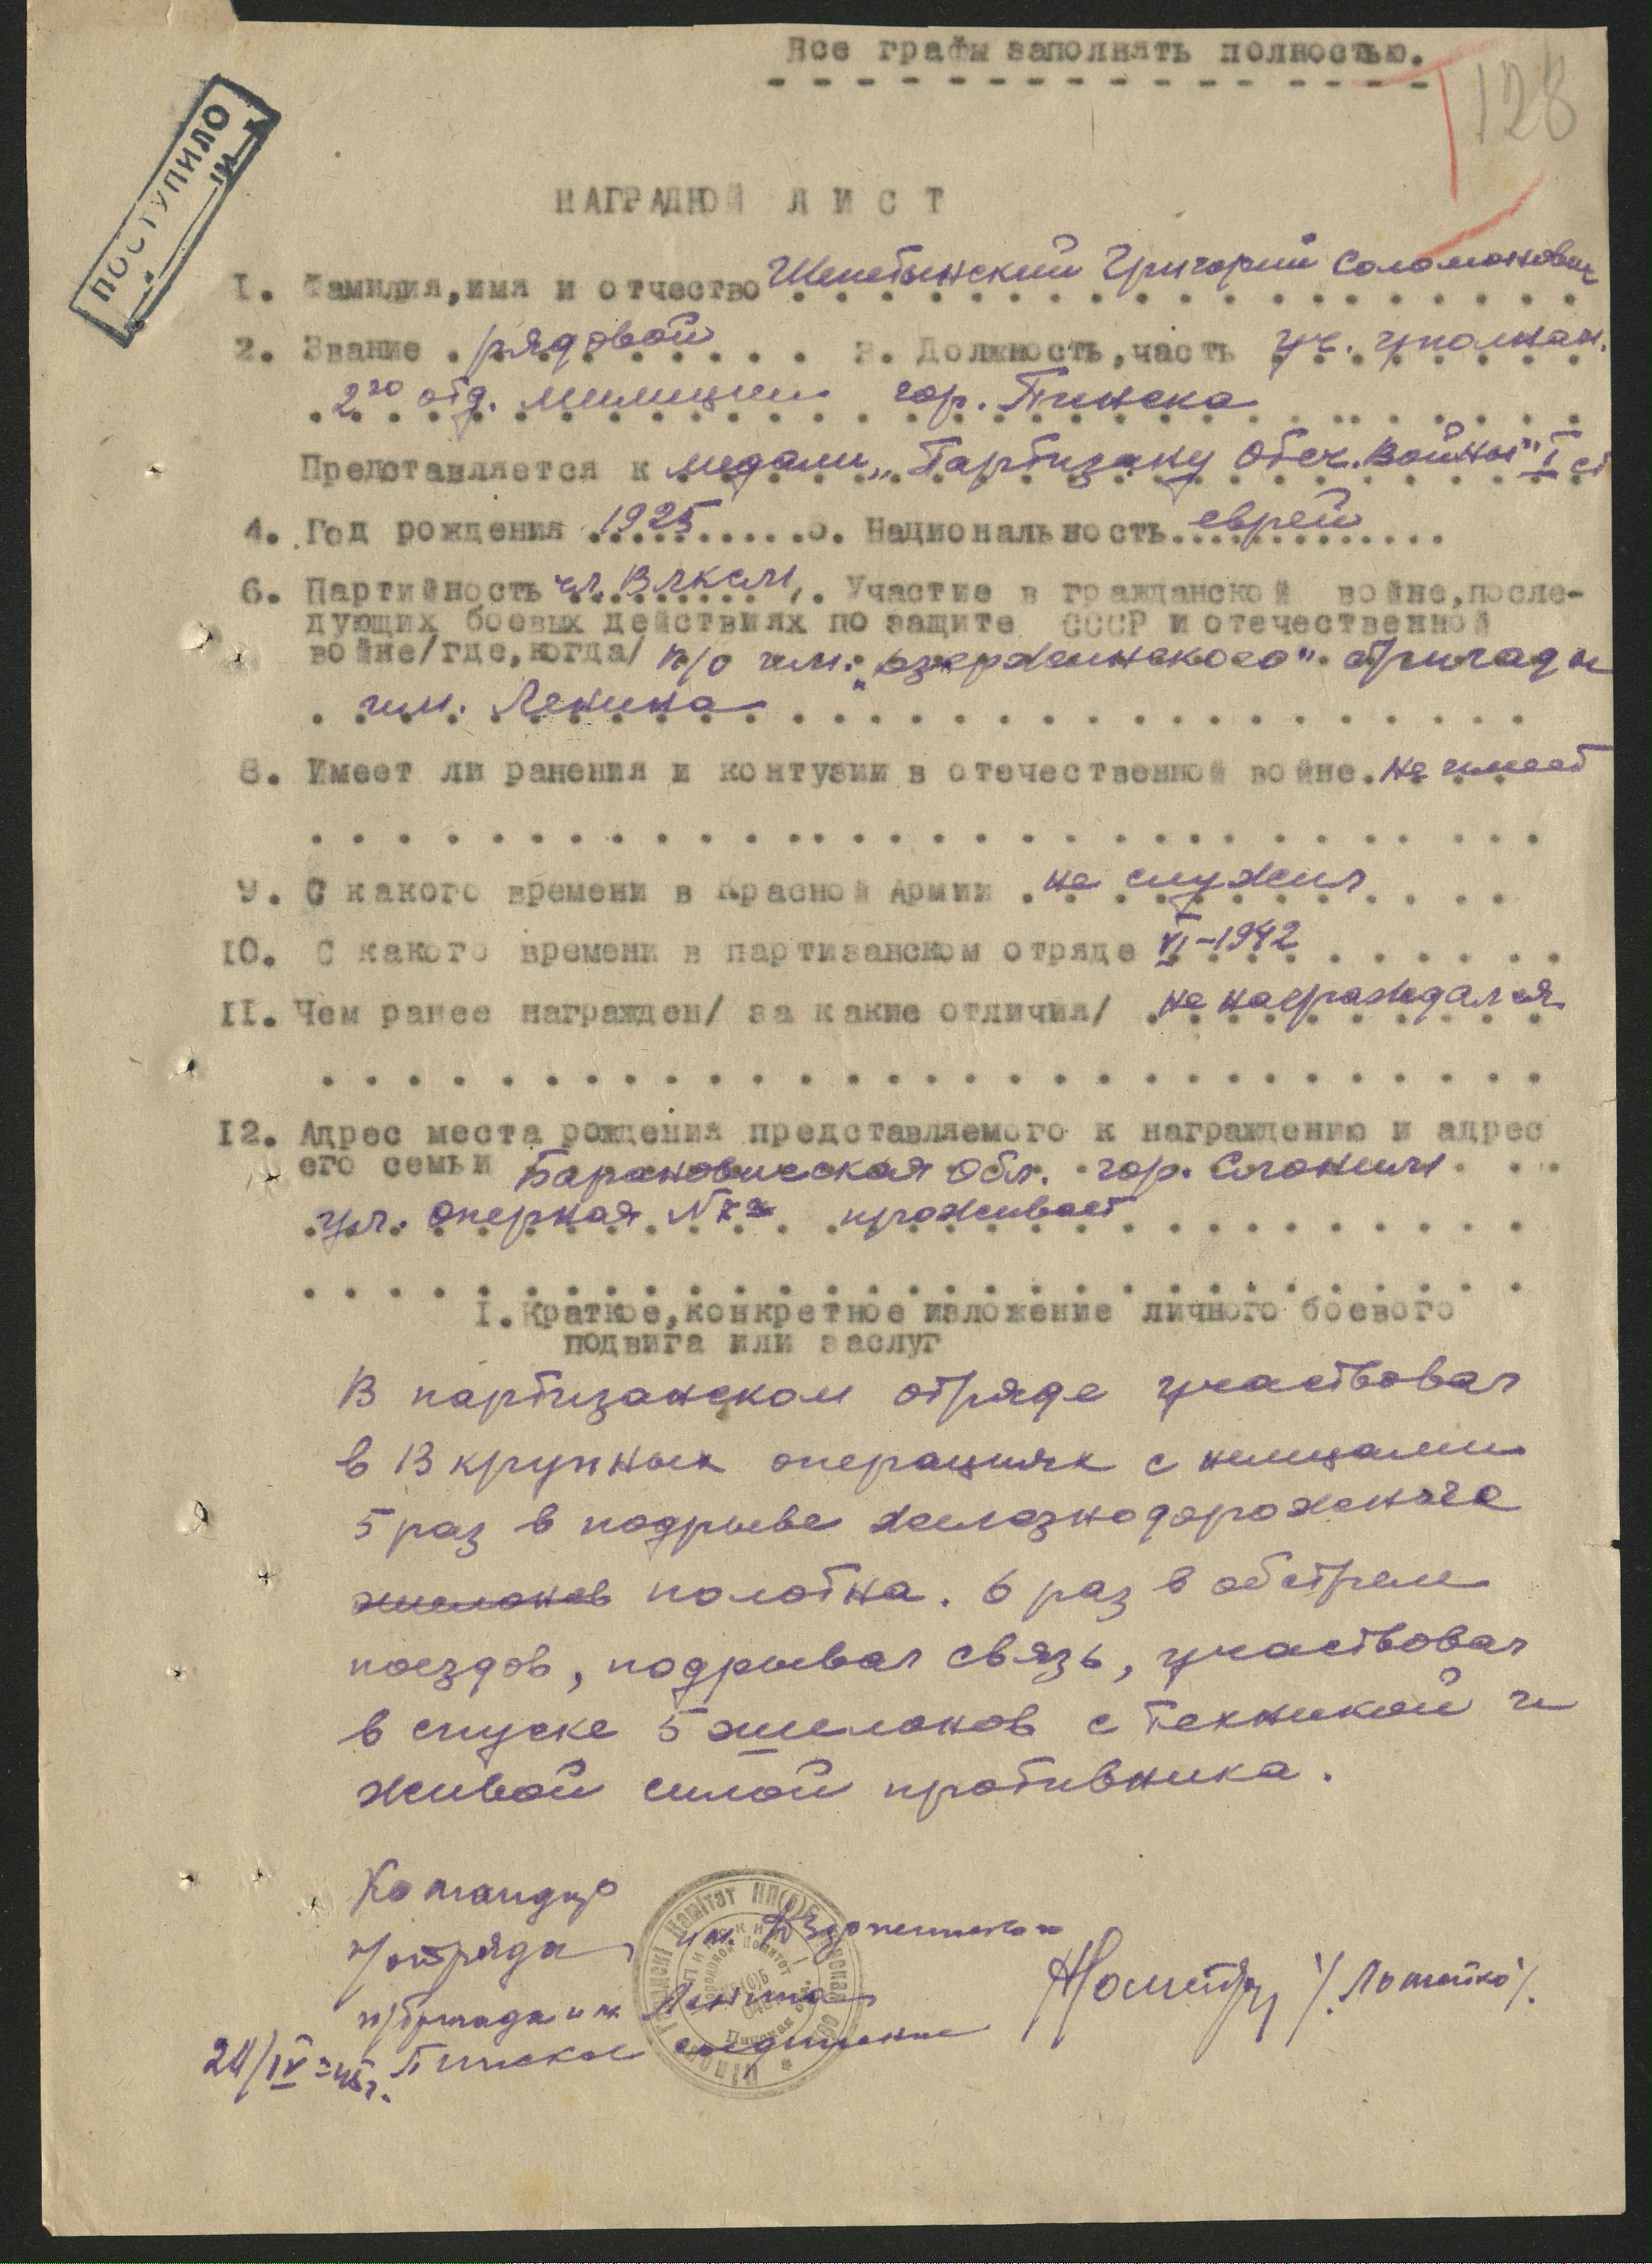 Все графы заполнять полностью.
128
ПОСТУПИЛО
НАГРАДНОЙ ЛИСТ
1. Фамилия, имя и отчество Шепетынский Григорий Соломонович
2. Звание рядовой 3. Должность, часть уч. уполном.
2го отд. милиции гор. Пинска
Представляется к медали „Партизану Отеч. Войны" I ст
4. Год рождения 1925 5. Национальность еврей
6. Партийность чл. ВЛКСМ 7. Участие в гражданской войне, после-
дующих боевых действиях по защите СССР и отечественной
войне/где, когда/ п/о им. „Дзержинского" бригады
им. Ленина
8. Имеет ли ранения и контузии в отечественной войне. не имеет
9. С какого времени в Красной Армии не служил
10. С какого времени в партизанском отряде VI-1942
11. Чем ранее награжден/ за какие отличия/ не награждался
12. Адрес места рождения представляемого к награждению и адрес
его семьи Барановическая обл. гор. Слоним
ул. Оперная № проживает
I. Краткое, конкретное изложение личного боевого
подвига или заслуг
В партизанском отряде участвовал
в 13 крупных операциях с немцами
5 раз в подрыве железнодорожного
эшелонов полотна. 6 раз в обстреле
поездов, подрывал связь, участвовал
в спуске 5 эшелонов с техникой и
живой силой противника.
Командир
п/отряда им. Дзержинского
п/бригада им Ленина
24/IV-45г. Пинское соединение